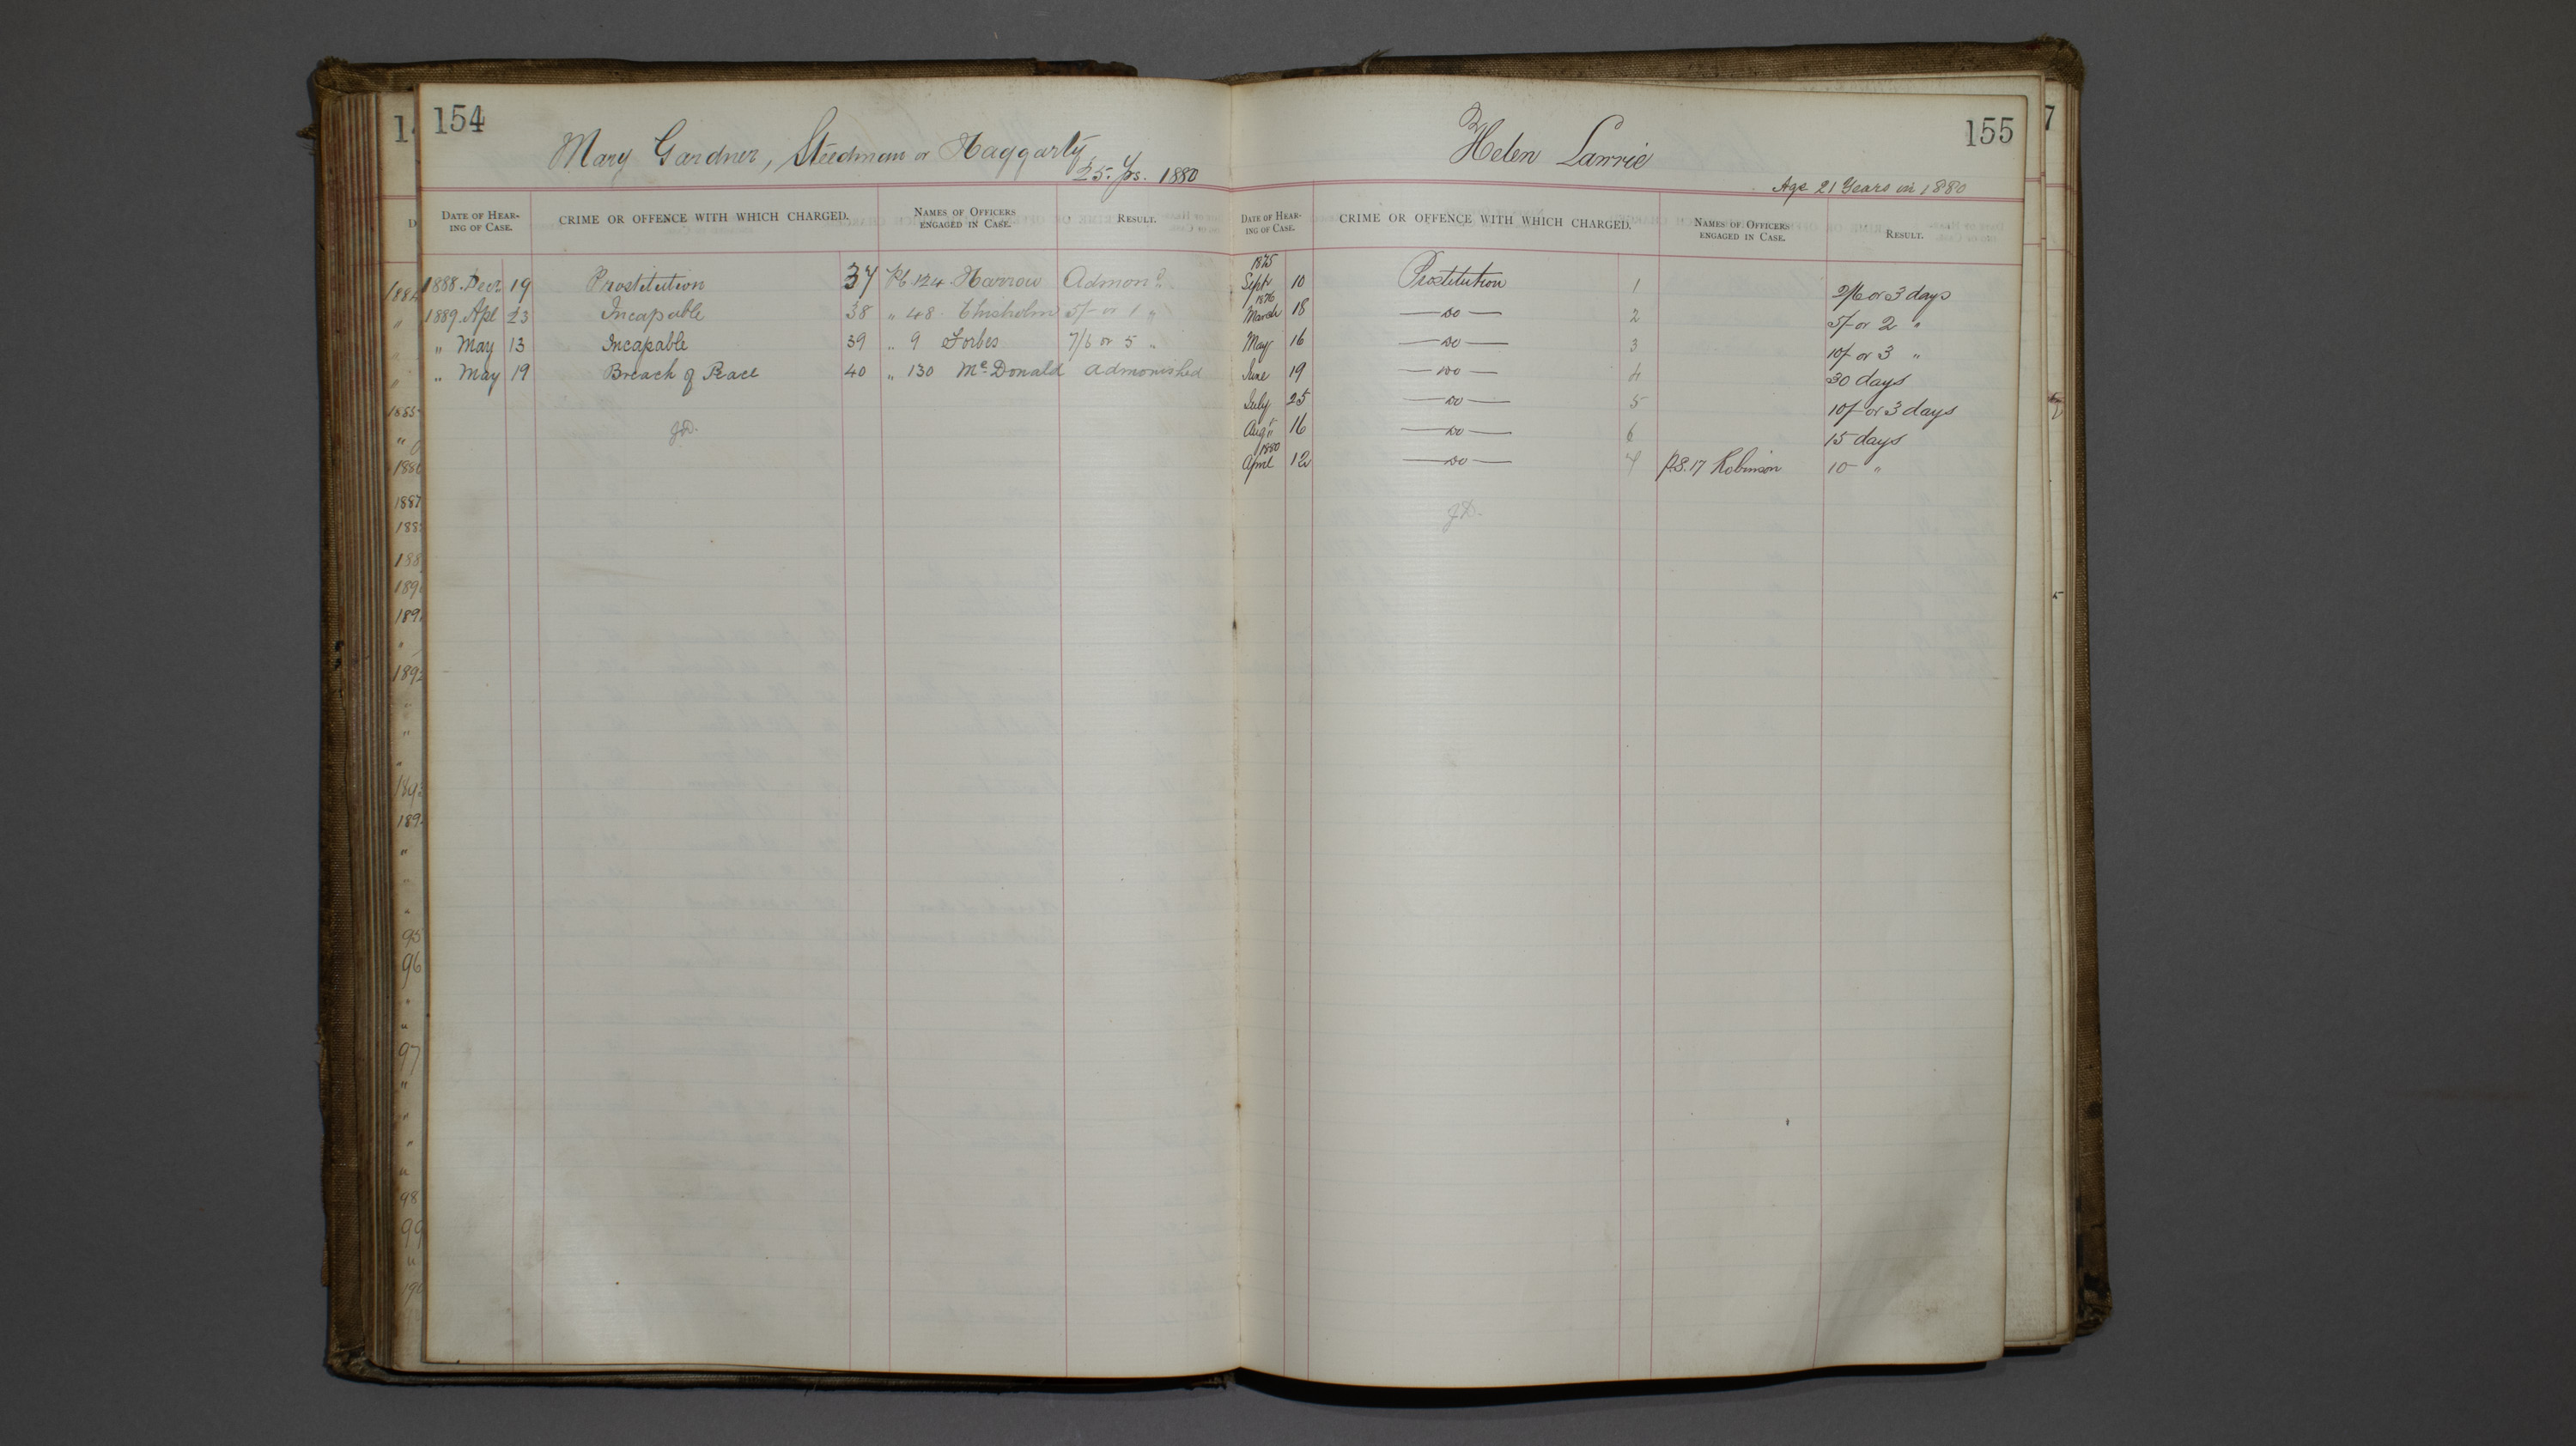 154
Mary Gardner, Steedman or Haggarty
25. Yrs. 1880
DATE OF HEARING OF CASE. CRIME OR OFFENCE WITH WHICH CHARGED. NAMES OF OFFICERS ENGAGED IN CASE. RESULT.
1888. Decr. 19 Prostitution 37 Pc 124. Harrow Admond.
1889. Apl 23 Incapable 38 " 48. Chisholm 5/- or 1 "
" May 13 Incapable 39 " 9 Forbes 7/6 or 5 "
" May 19 Breach of Peace 40 " 130 McDonald Admonished
J.D.
155
Helen Lawrie
Age 21 Years in 1880
DATE OF HEARING OF CASE. CRIME OR OFFENCE WITH WHICH CHARGED. NAMES OF OFFICERS ENGAGED IN CASE. RESULT.
1875
Sept 10 Prostitution 1 2/6 or 3 days
1876
March 18 — Do — 2 5/- or 2 "
May 16 — Do — 3 10/- or 3 "
June 19 — Do — 4 30 days
July 25 — Do — 5 10/- or 3 days
Aug " 16 — Do — 6 15 days
1880
April 12 — Do — 7 P.S. 17 Robinson 10 "
J.D.